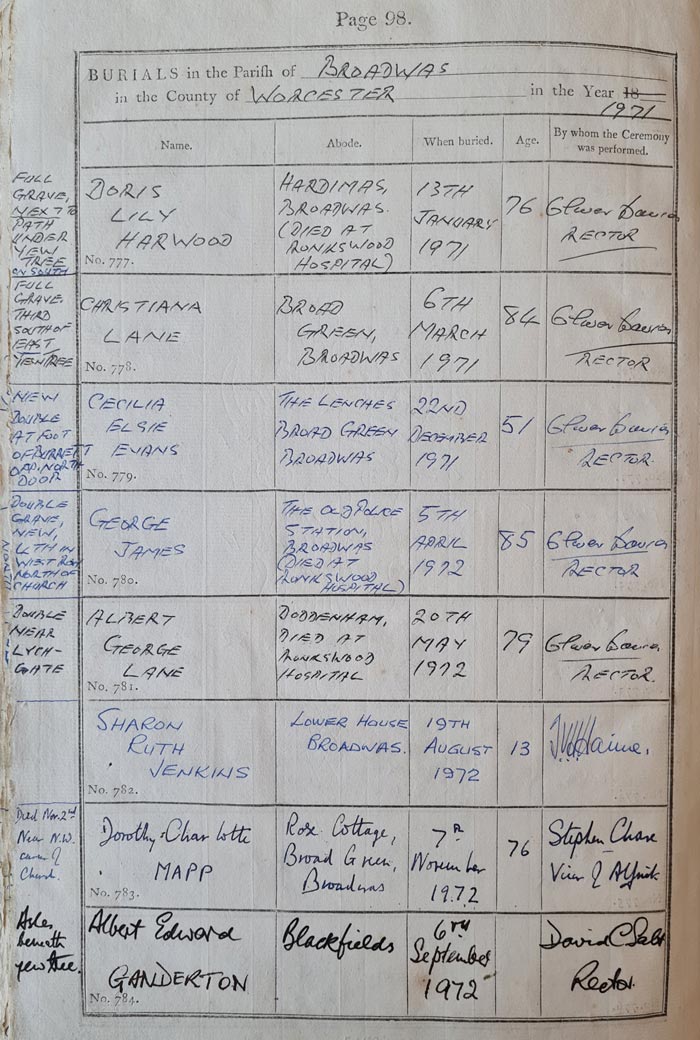 Page 98.
BURIALS in the Parish of BROADWAS
in the County of WORCESTER in the Year 18
1971
Name. Abode. When buried. Age. By whom the Ceremony was performed.
FULL
GRAVE,
NEXT TO
PATH
UNDER
YEW
TREE
ON SOUTH
DORIS
LILY
HARWOOD
No. 777.
HARDIMAS,
BROADWAS.
(DIED AT
RONKSWOOD
HOSPITAL)
13TH
JANUARY
1971
76
RECTOR
FULL
GRAVE
THIRD
SOUTH OF
EAST
YEW TREE
CHRISTIANA
LANE
No. 778.
BROAD
GREEN,
BROADWAS
6TH
MARCH
1971
84
RECTOR
NEW
DOUBLE
AT FOOT
OF BURNETT
OPP. NORTH
DOOR
CECILIA
ELSIE
EVANS
No. 779.
THE LENCHES
BROAD GREEN
BROADWAS
22ND
DECEMBER
1971
51
RECTOR.
DOUBLE
GRAVE,
NEW,
4TH IN
WEST ROW
NORTH OF
CHURCH
GEORGE
JAMES
No. 780.
THE OLD POLICE
STATION,
BROADWAS
(DIED AT
RONKSWOOD
HOSPITAL)
5TH
APRIL
1972
85
RECTOR
DOUBLE
NEAR
LYCH-
GATE
ALBERT
GEORGE
LANE
No. 781.
DODDENHAM,
DIED AT
RONKSWOOD
HOSPITAL
20TH
MAY
1972
79
RECTOR.
SHARON
RUTH
JENKINS
No. 782.
LOWER HOUSE
BROADWAS.
19TH
AUGUST
1972
13
Died Nov. 2nd
Near N.W.
corner of
Church.
Dorothy Charlotte
MAPP
No. 783.
Rose Cottage,
Broad Green,
Broadwas
7th
November
1972
76
Stephen
Vicar of Alfrick
Ashes
beneath
yew tree.
Albert Edward
GANDERTON
No. 784.
Blackfields
6TH
September
1972
David C Salt
Rector.